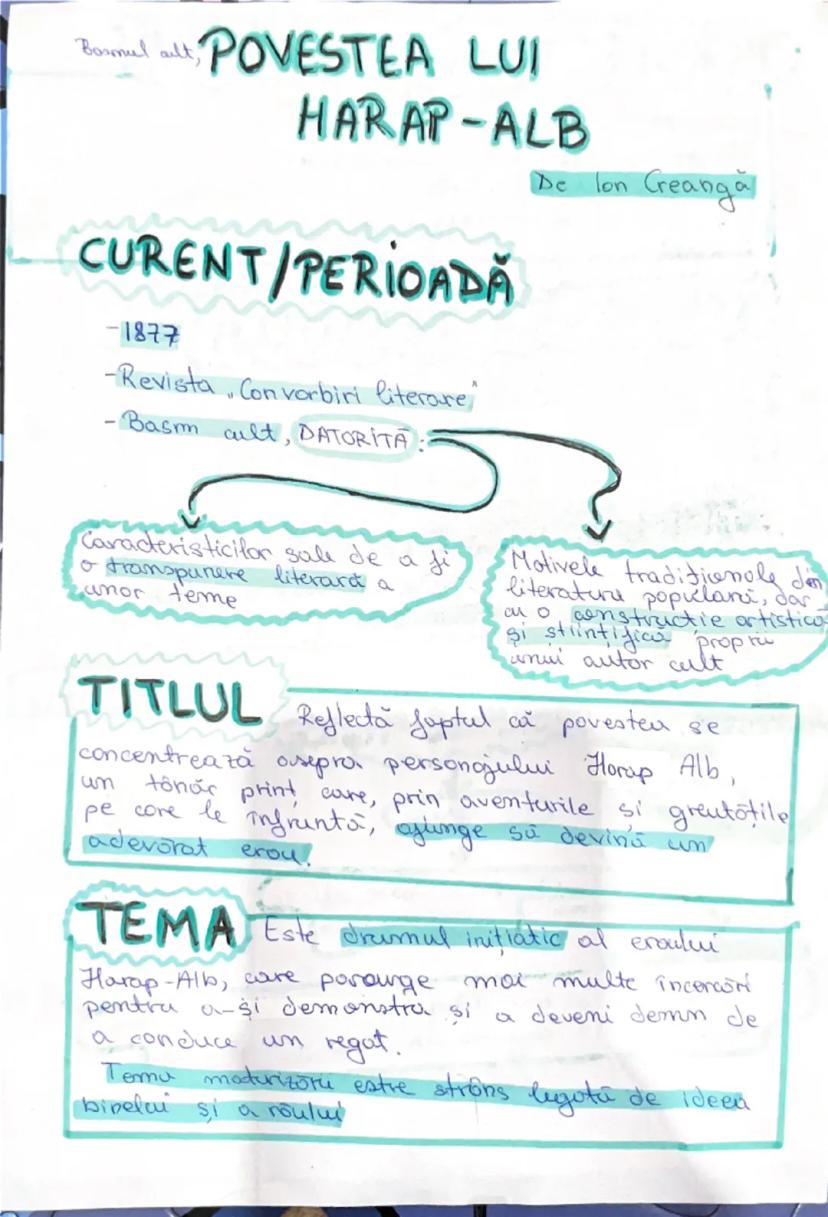 Basmul cult, POVESTEA LUI
HARAP-ALB
De Ion Creangă
CURENT/PERIOADĂ
-1877
-Revista „Convorbiri literare"
- Basm cult, DATORITĂ:
Caracteristicilor sale de a fi
o transpunere literară a
unor teme
Motivele tradiționale din
literatura populară, dar
cu o constructie artistica
și stiintifica proprii
unui autor cult
TITLUL Reflectă faptul că povestea se
concentrează asupra personajului Harap Alb,
un tânăr prinț care, prin aventurile și greutățile
pe care le înfruntă, ajunge să devină un
adevărat erou.
TEMA Este drumul inițiatic al eroului
Harap-Alb, care parcurge mai multe încercări
pentru a-și demonstra și a deveni demn de
a conduce un regat.
Tema maturizării estre strâns legată de ideea
binelui și a răului